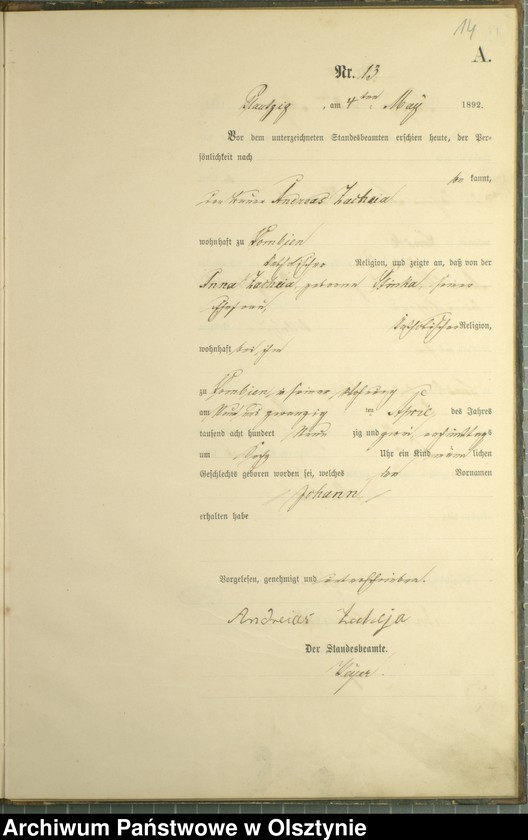 14
A.
Nr. 13.
Plautzig, am 4ten May 1892.
Vor dem unterzeichneten Standesbeamten erschien heute, der Per-
sönlichkeit nach
be kannt,
der Andreas Zacheia
wohnhaft zu
katholischer Religion, und zeigte an, daß von der
Anna Zacheia, geborene seiner
Ehefrau,
Katholischer Religion,
wohnhaft bei ihm
zu in seiner Wohnung
am Neun und zwanzig ten April des Jahres
tausend acht hundert Neun zig und zwei,
um Uhr ein Kind männ lichen
Geschlechts geboren worden sei, welches den Vornamen
Johann
erhalten habe
Vorgelesen, genehmigt und unterschrieben.
Andreias Zacheja
Der Standesbeamte.
Archiwum Państwowe w Olsztynie